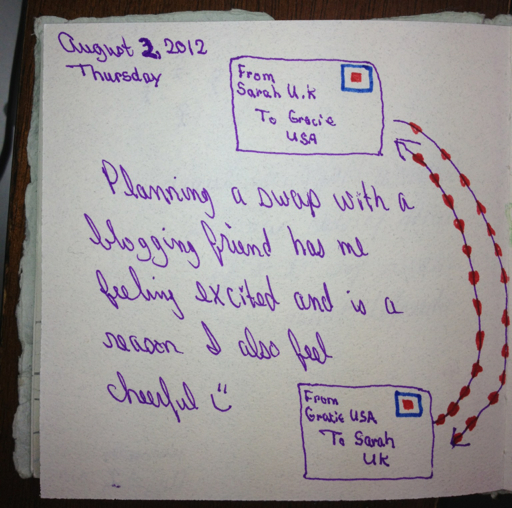 August 2, 2012
Thursday
From
Sarah U.K
To Gracie
USA
Planning a swap with a
blogging friend has me
feeling excited and is a
reason I also feel
cheerful
From
Gracie USA
To Sarah
UK